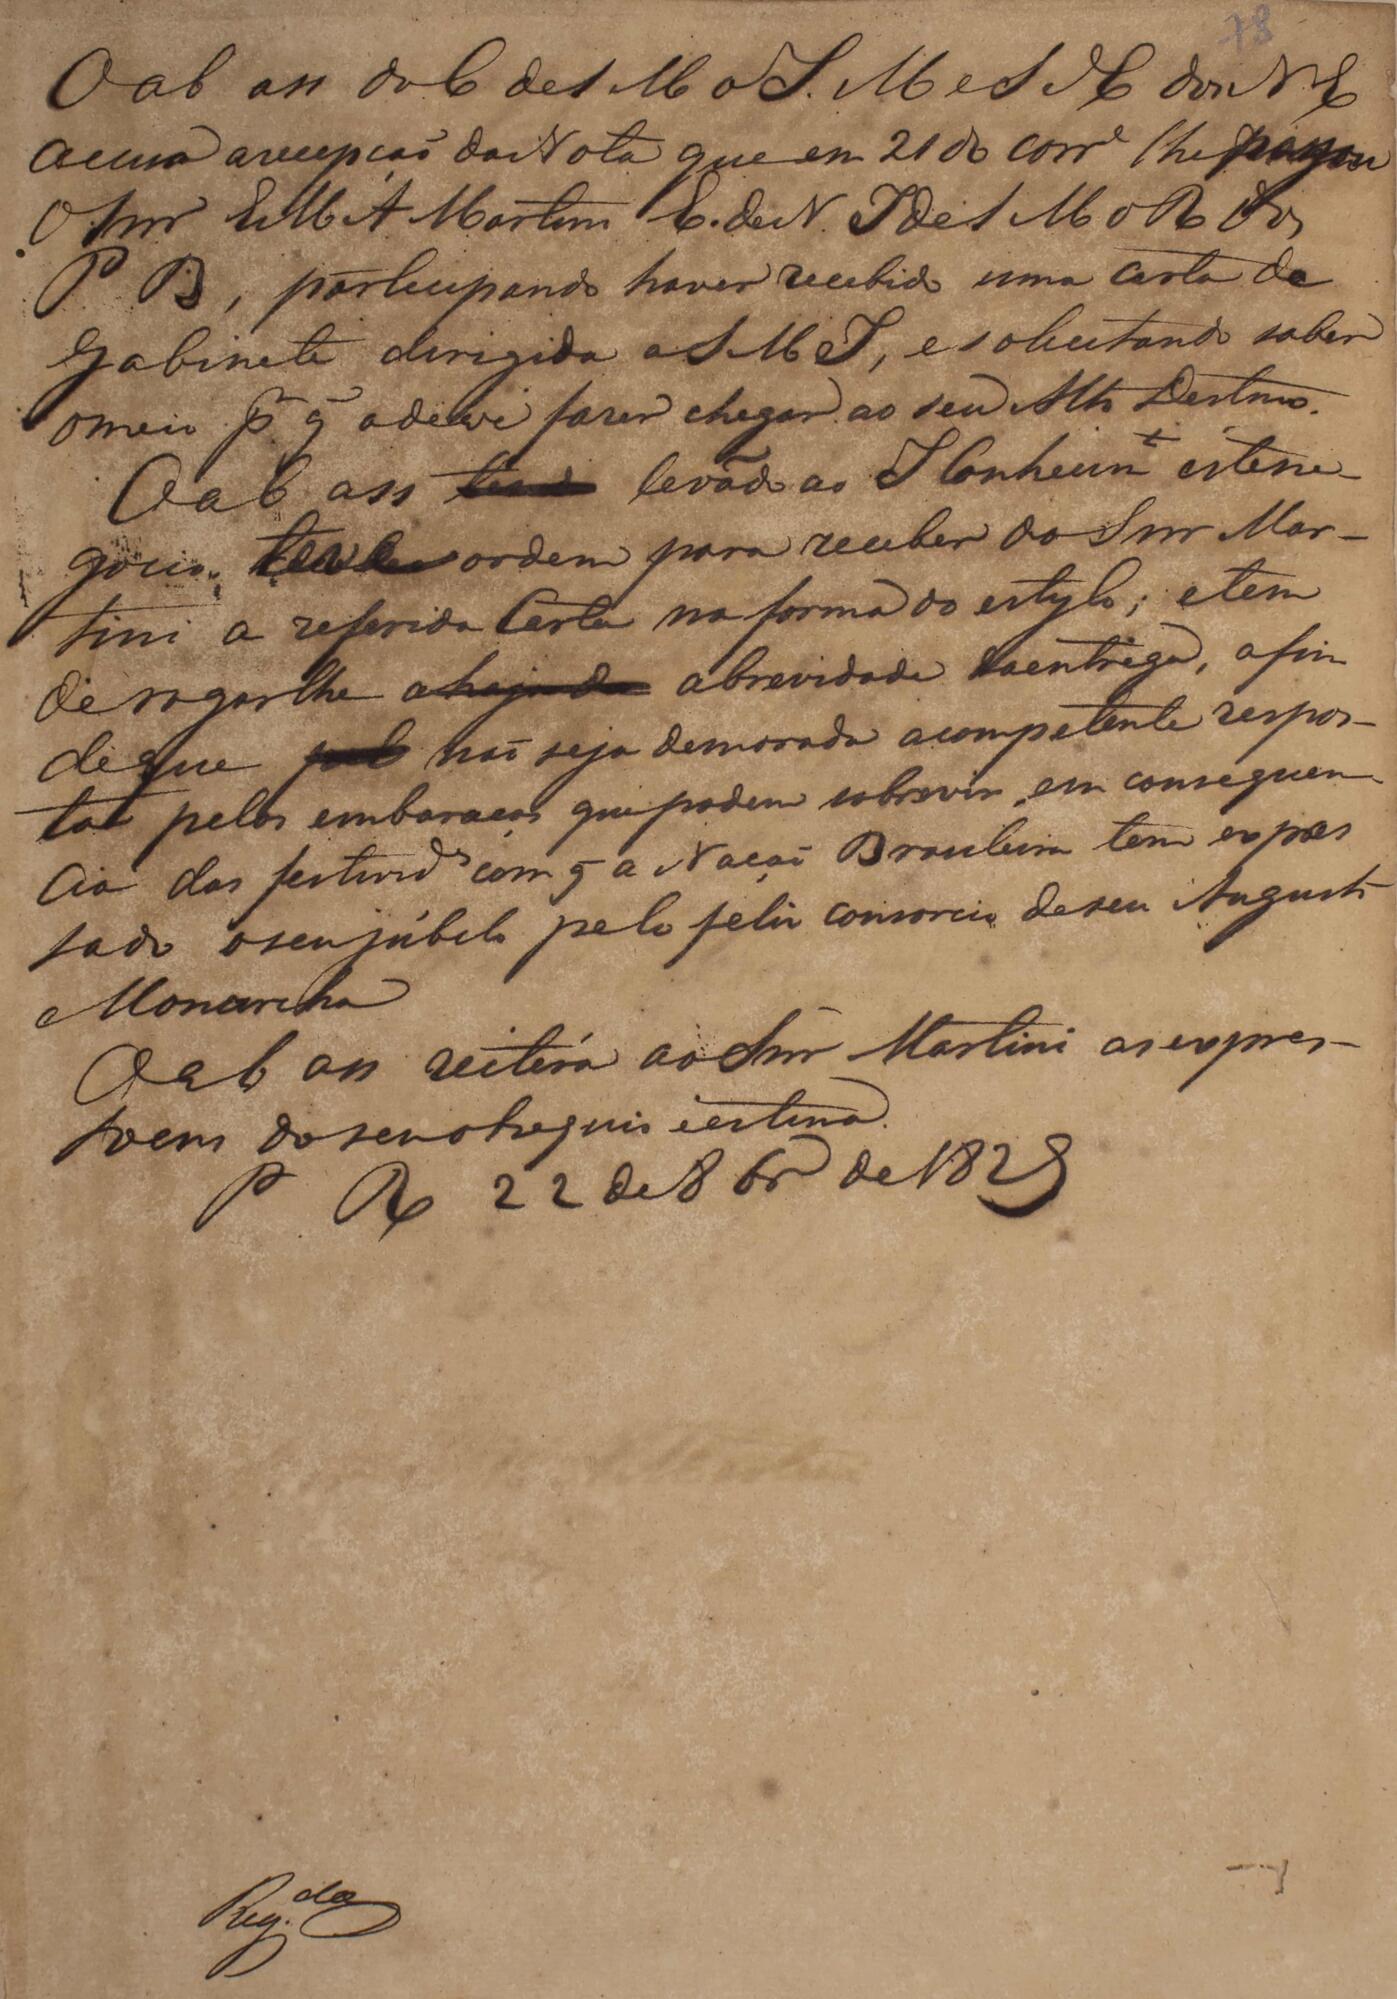 78
O ab ass do C de S M o I. M e S E dos N E
accusa a recepção da Nota que em 21 do corr.e lhe passou
O Snr E M A Martini E. de N. I de S M o R dos
P B, participando haver recebido uma Carta de
Gabinete dirigida a S M I, e solicitando saber
o meio p.r q̃ a deve fazer chegar ao seu Alto Destino.
O ab ass levãdo ao I Conhecim.to este ne-
gocio, teve ordem para receber do Snr Mar-
tini a referida Carta na forma do estylo; e tem
de rogar lhe a brevidade da entrega, afim
de que não seja demorada a competente respos-
ta pelos embaraços que podem sobrevir em consequen-
cia das festivid.es com q̃ a Nação Brasileira tem expres
sado o seu júbilo pelo feliz consorcio de seu Augusto
Monarcha
O ab ass reitéra ao Snr Martini as expres-
soens do seu obsequio e estima.
P R 22 de 8br.o de 1829
Reg.da